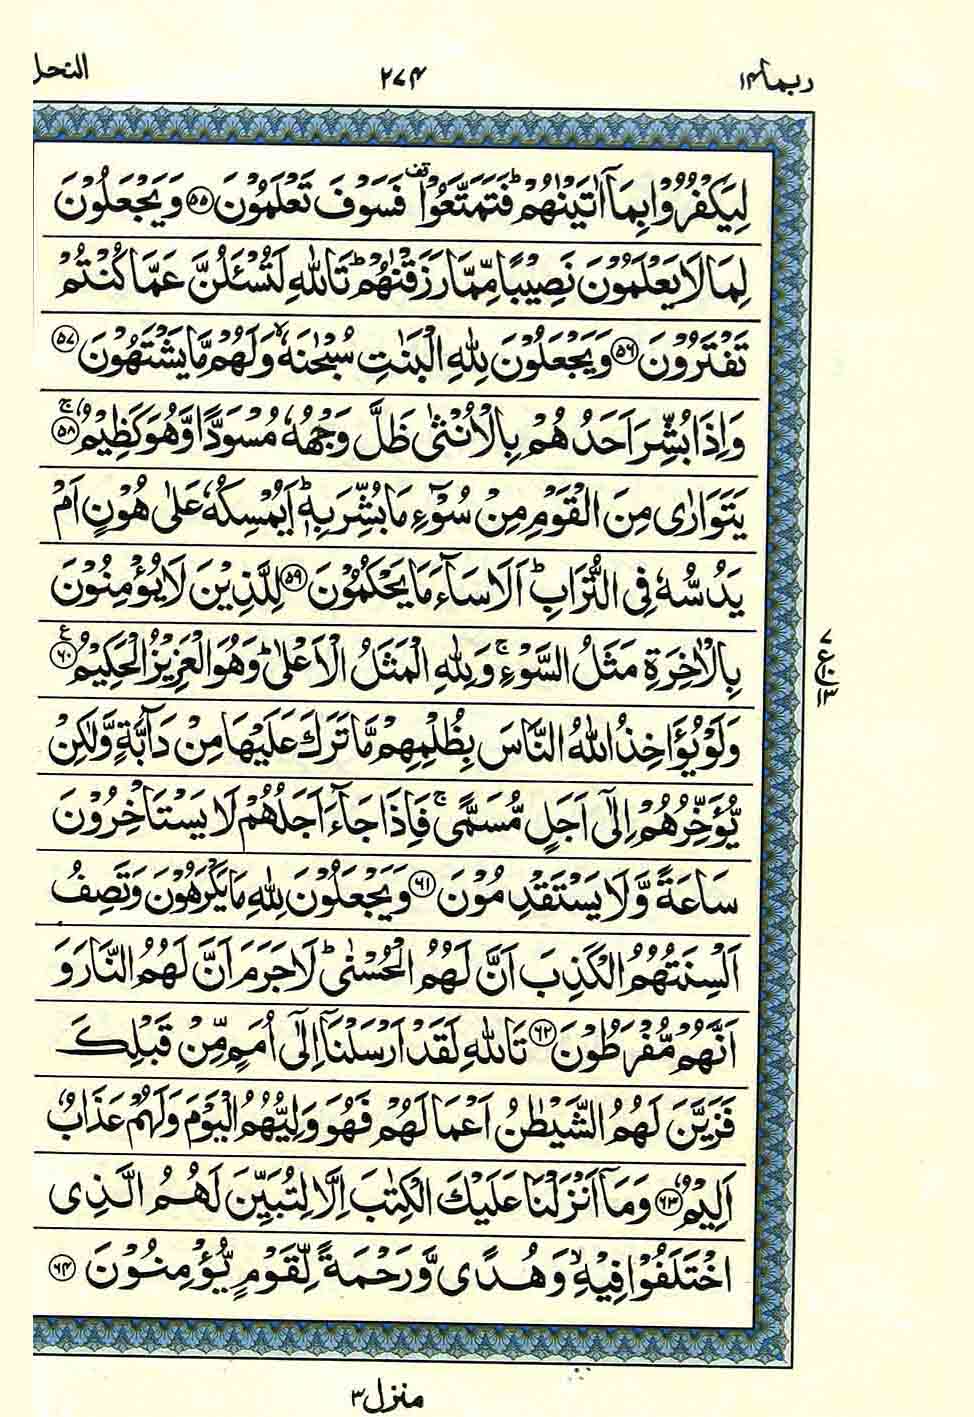 ربما ١٤ ٢٧٤ النحل
لِيَكْفُرُوْا بِمَاۤ اٰتَيْنٰهُمْ ؕ فَتَمَتَّعُوْا ۫ فَسَوْفَ تَعْلَمُوْنَ ﴿۵۵﴾ وَ يَجْعَلُوْنَ
لِمَا لَا يَعْلَمُوْنَ نَصِيْبًا مِّمَّا رَزَقْنٰهُمْ ؕ تَاللّٰهِ لَتُسْـَٔلُنَّ عَمَّا كُنْتُمْ
تَفْتَرُوْنَ ﴿۵۶﴾ وَ يَجْعَلُوْنَ لِلّٰهِ الْبَنٰتِ سُبْحٰنَهٗ ۙ وَ لَهُمْ مَّا يَشْتَهُوْنَ ﴿۵۷﴾
وَ اِذَا بُشِّرَ اَحَدُهُمْ بِالْاُنْثٰى ظَلَّ وَجْهُهٗ مُسْوَدًّا وَّ هُوَ كَظِيْمٌ ۚ ﴿۵۸﴾
يَتَوَارٰى مِنَ الْقَوْمِ مِنْ سُوْٓءِ مَا بُشِّرَ بِهٖ ؕ اَيُمْسِكُهٗ عَلٰى هُوْنٍ اَمْ
يَدُسُّهٗ فِى التُّرَابِ ؕ اَلَا سَآءَ مَا يَحْكُمُوْنَ ﴿۵۹﴾ لِلَّذِيْنَ لَا يُؤْمِنُوْنَ
بِالْاٰخِرَةِ مَثَلُ السَّوْءِ ۚ وَ لِلّٰهِ الْمَثَلُ الْاَعْلٰى ؕ وَ هُوَ الْعَزِيْزُ الْحَكِيْمُ ﴿۶۰﴾ ع
٧ ع ١٠ ١٣
وَ لَوْ يُؤَاخِذُ اللّٰهُ النَّاسَ بِظُلْمِهِمْ مَّا تَرَكَ عَلَيْهَا مِنْ دَآبَّةٍ وَّ لٰكِنْ
يُّؤَخِّرُهُمْ اِلٰۤى اَجَلٍ مُّسَمًّى ۚ فَاِذَا جَآءَ اَجَلُهُمْ لَا يَسْتَاْخِرُوْنَ
سَاعَةً وَّ لَا يَسْتَقْدِمُوْنَ ﴿۶۱﴾ وَ يَجْعَلُوْنَ لِلّٰهِ مَا يَكْرَهُوْنَ وَ تَصِفُ
اَلْسِنَتُهُمُ الْكَذِبَ اَنَّ لَهُمُ الْحُسْنٰى ؕ لَا جَرَمَ اَنَّ لَهُمُ النَّارَ وَ
اَنَّهُمْ مُّفْرَطُوْنَ ﴿۶۲﴾ تَاللّٰهِ لَقَدْ اَرْسَلْنَاۤ اِلٰۤى اُمَمٍ مِّنْ قَبْلِكَ
فَزَيَّنَ لَهُمُ الشَّيْطٰنُ اَعْمَالَهُمْ فَهُوَ وَلِيُّهُمُ الْيَوْمَ وَ لَهُمْ عَذَابٌ
اَلِيْمٌ ﴿۶۳﴾ وَ مَاۤ اَنْزَلْنَا عَلَيْكَ الْكِتٰبَ اِلَّا لِتُبَيِّنَ لَهُمُ الَّذِى
اخْتَلَفُوْا فِيْهِ ۙ وَ هُدًى وَّ رَحْمَةً لِّقَوْمٍ يُّؤْمِنُوْنَ ﴿۶۴﴾
منزل ٣